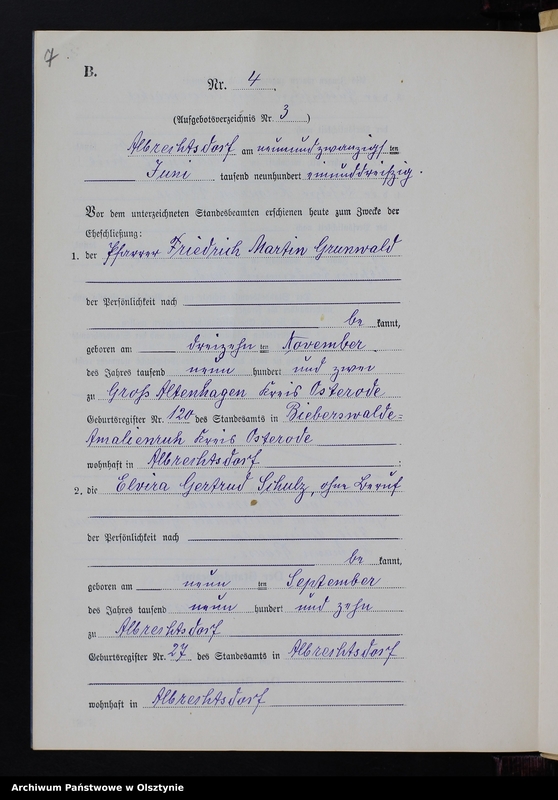 7
B.
Nr. 4.
(Aufgebotsverzeichnis Nr. 3)
Albrechtsdorf am neunundzwanzigsten
Juni tausend neunhundert einunddreißzig.
Vor dem unterzeichneten Standesbeamten erschienen heute zum Zwecke der
Eheschließung:
1. der Pfarrer Friedrich Martin Grunwald
der Persönlichkeit nach
be kannt,
geboren am dreizehnten November
des Jahres tausend neun hundert und zwei
zu Groß Altenhagen Kreis Osterode
Geburtsregister Nr. 120 des Standesamts in Bieberswalde=
Amalienruh Kreis Osterode
wohnhaft in Albrechtsdorf ;
2. die Elvira Gertrud Schulz, ohne Beruf
der Persönlichkeit nach
be kannt,
geboren am neunten September
des Jahres tausend neun hundert und zehn
zu Albrechtsdorf
Geburtsregister Nr. 27 des Standesamts in Albrechtsdorf
wohnhaft in Albrechtsdorf
Archiwum Państwowe w Olsztynie